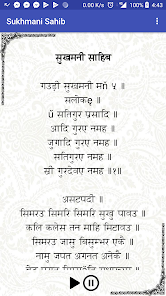 4:43
Sukhmani Sahib
सुखमनी साहिब
गउड़ी सुखमनी मਂ ५ ॥
सलोकु ॥
ੴ सतिगुर प्रसादि ॥
आदि गुरए नमह ॥
जुगादि गुरए नमह ॥
सतिगुरए नमह ॥
स्री गुरदेवए नमह ॥१॥
असटपदी ॥
सिमरउ सिमरि सिमरि सुखु पावउ ॥
कलि कलेस तन माहि मिटावउ ॥
सिमरउ जासु बिसुम्भर एकै ॥
नामु जपत अगनत अनेकै ॥